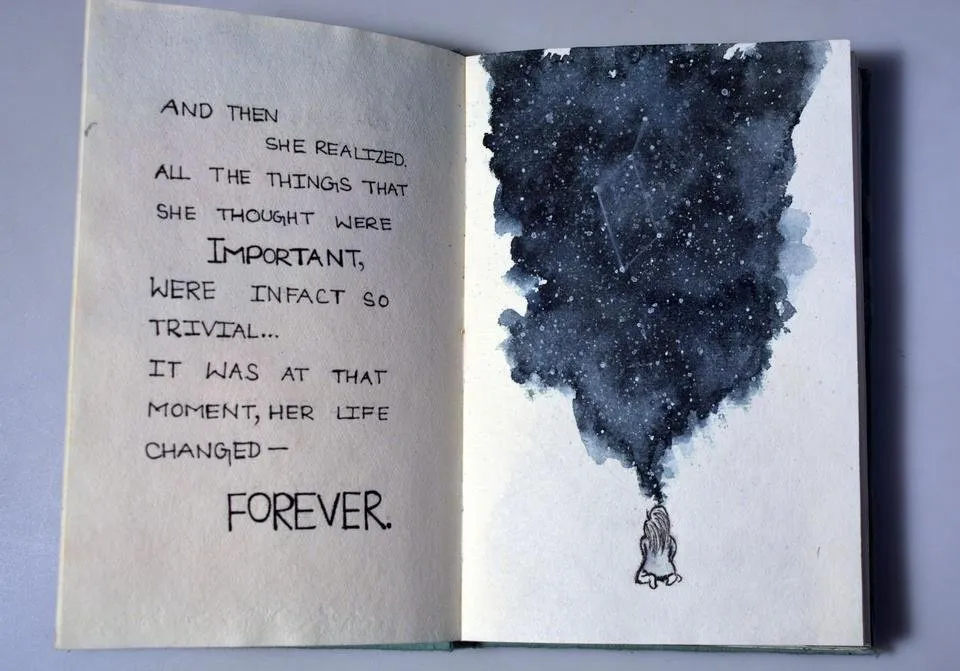 AND THEN
SHE REALIZED.
ALL THE THINGS THAT
SHE THOUGHT WERE
IMPORTANT,
WERE INFACT SO
TRIVIAL...
IT WAS AT THAT
MOMENT, HER LIFE
CHANGED —
FOREVER.